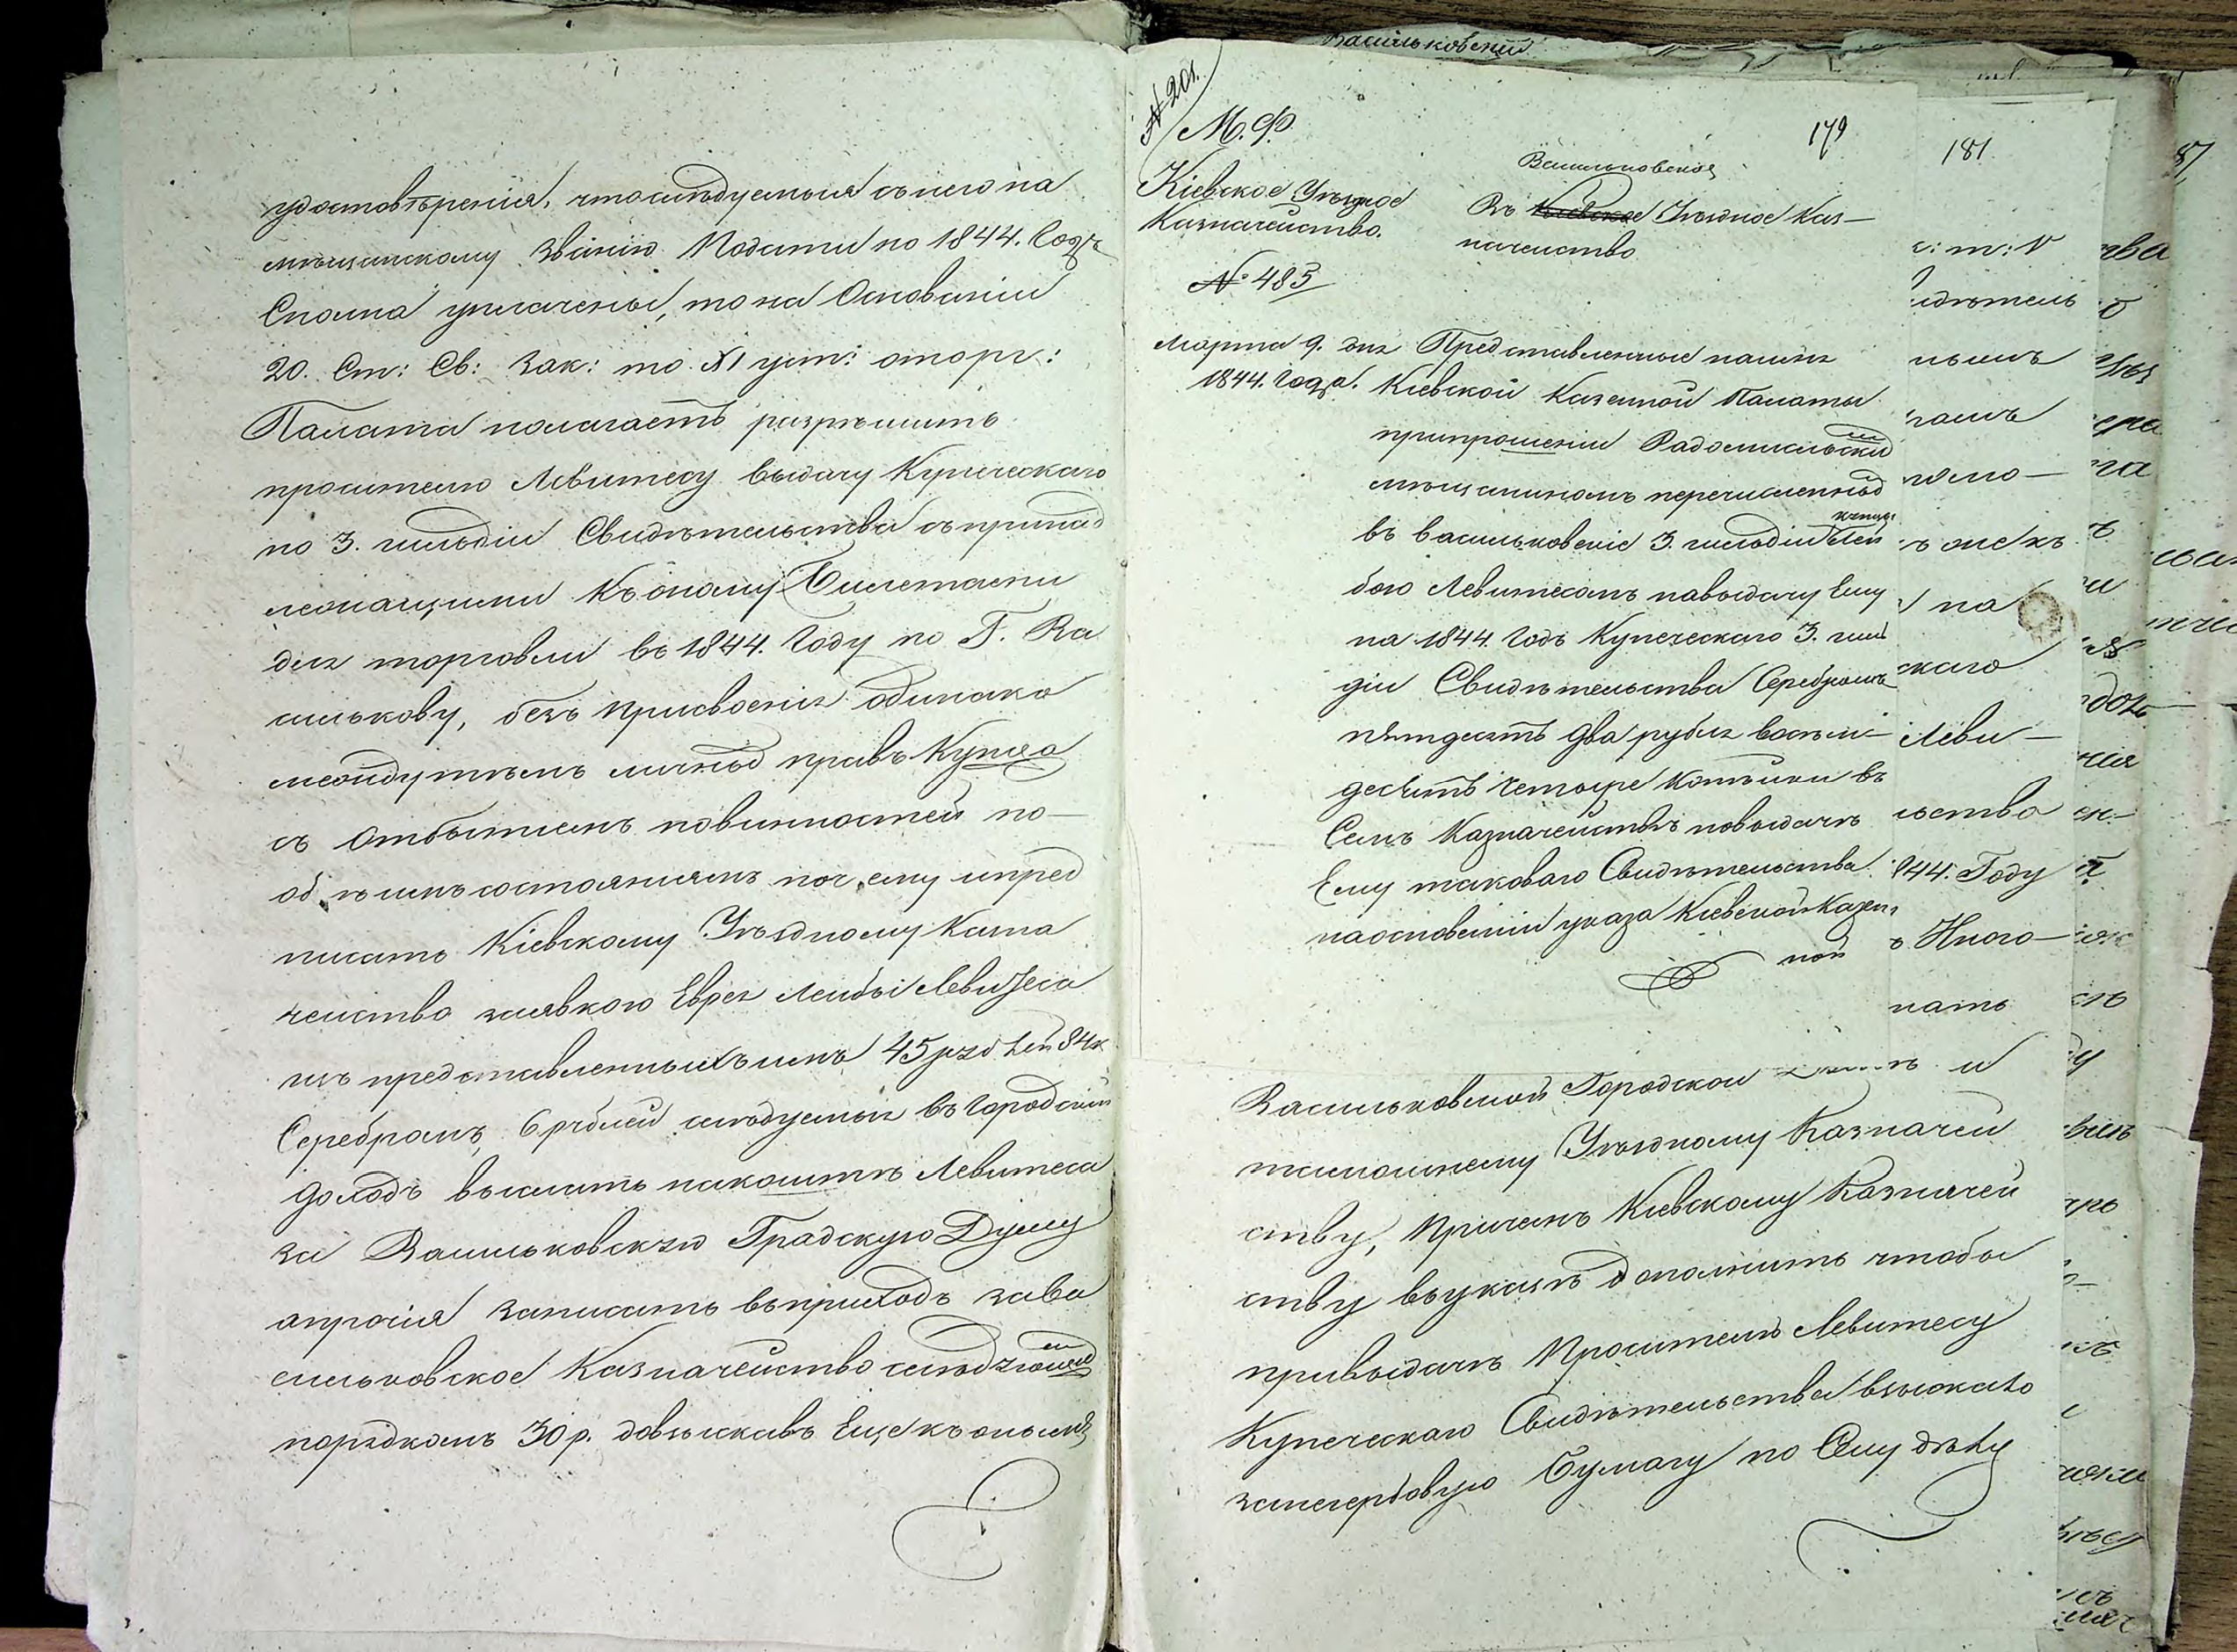 удостовѣренія, что слѣдуемыя съ него на
мѣщанскому званію Подати по 1844. Годъ
Сполна уплачены, то на Основаніи
20. Ст: Св: Зак: то XI уст: о торг:
Палата полагаетъ разрѣшить
просителю Левитесу выдачу Купеческаго
по 3. гильдіи Свидѣтельства съ принад
лежащими къ оному Билетами
для торговли въ 1844. Году по Г. Ва
силькову, безъ присвоенія однако
между тѣмъ личныхъ правъ Купца
съ отбытіемъ повинностей по
обѣимъ состояніямъ почему и пред
писать Кіевскому Уѣздному Казна
чейство заявкою Еврея Лейбы Левитеса
изъ представленныхъ имъ 45 руб лей 84 к
Серебромъ, 6 рублей слѣдуемыя въ городскій
доходъ выслать на счетъ Левитеса
за Васильковскую Градскую Думу
а прочія записать въ приходъ за Ва
сильковское Казначейство слѣдующимъ
порядкомъ 30 р. довзыскавъ Еще къ онымъ
Васильковскій
№ 201.
М. Ф.
179
Кіевское Уѣздное
Казначейство.
№ 483
Марта 9. дня
1844. года.
Васильковское
Въ Кіевское Уѣздное Каз—
начейство
Представленные
Кіевской Казенной Палаты
при прошеніи Радомысльскимъ
мѣщаниномъ перечисленнымъ
въ васильковскіе 3. гильдіи купцы Лей
бою Левитесомъ на выдачу Ему
на 1844. годъ Купеческаго 3. гиль
діи Свидѣтельства Серебромъ
пятдесятъ два рубля восемь
десятъ четыре копѣйки въ
Семъ Казначействѣ по выдачѣ
Ему таковаго Свидѣтельства
на основаніи указа Кіевской Казен
ной
Васильковской Городской и
тамошнему Уѣздному Казначей
ству, Причемъ Кіевскому Казначей
ству въ указѣ дополнить чтобы
при выдачѣ Просителю Левитесу
Купеческаго Свидѣтельства взыскало
за гербовую Бумагу по Сему дѣлу
181
с: т: V
идѣтель
нымъ
ъ же къ
на
скаго
Леви—
льства
844. Году
ъ Иного—
нать
87